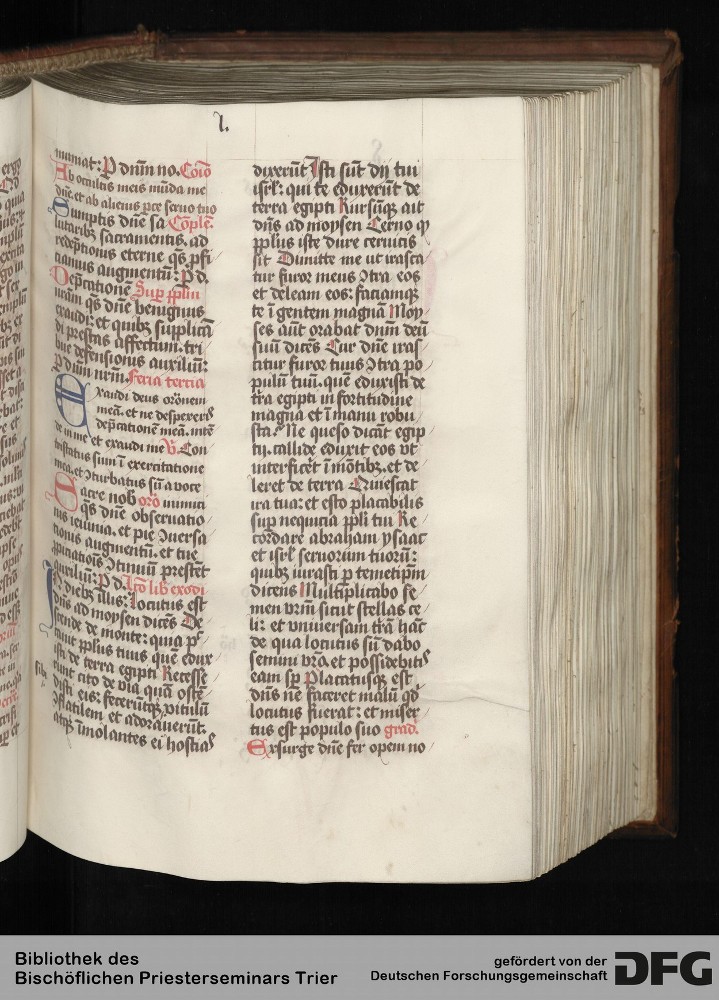 l.
muniat: P dnm no. Coīo
Ab occultis meis mūda me
dn̄e. et ab alienis p̄ce seruo tuo
Sumptis dn̄e sa Cōple.
lutaribꝫ sacramentis. ad
redēptionis eterne qs̄ pfi
ciamus augmentū: P d.
Dep̄cationē Sup pplm
nr̄am qs̄ dn̄e benignus
exaudi: et quibꝫ supplicā
di prestas affectum. tri
bue defensionis auxiliū:
P dnm nr̄m. Feria tertia
Exaudi deus or̄onem
meā. et ne despexeris
dep̄cationē meā. intē
de in me et exaudi me V̄. Con
tristatus sum ī exercitatione
mea. et ꝯturbatus sū a voce
Sacre nob oro inimici
qs̄ dn̄e obseruatio
nis ieiunia. et pie ꝯuersa
tionis augmentū. et tue
ꝓpiciationis ꝯtinuū prestēt
auxiliū: P d. Lc̄o lib exodi
In diebꝫ illis: Locutus est
dn̄s ad moysen dicēs De
scende de monte: quia pec
cauit pplus tuus quē edux
isti de terra egipti Recesse
runt cito de via quā ostē
disti eis: fecerūtqꝫ vitulū
ꝯflatilem et adorauerūt.
atqꝫ īmolantes ei hostias
dixerūt Isti sūt dij tui
isrl: qui te eduxerūt de
terra egipti Rursūqꝫ ait
dn̄s ad moysen Cerno ꝙ
pplus iste dure ceruicis
sit Dimitte me ut irasca
tur furor meus ꝯtra eos
et deleam eos: faciamqꝫ
te ī gentem magnā Moy
ses aūt orabat dnm deū
suū dicēs Cur dn̄e iras
citur furor tuus ꝯtra po
pulū tuū. quē eduxisti de
tr̄a egipti in fortitudine
magna et ī manu robu
sta. Ne queso dicāt egip
tij. callide eduxit eos vt
interficēt ī mōtibꝫ. et de
leret de terra Quiescat
ira tua: et esto placabilis
sup nequicia ppli tui Re
cordare abraham ysaac
et isrl seruorum tuorū:
quibꝫ iurasti p temetipm
dicens Multiplicabo se
men vr̄m sicut stellas ce
li: et vniuersam tr̄am hāc
de qua locutus sū dabo
semini vr̄o. et possidebitis
eam sp Placatusqꝫ est
dn̄s ne faceret malū qd
locutus fuerat: et miser
tus est populo suo grad.
Exsurge dn̄e fer opem no
Bibliothek des
Bischöflichen Priesterseminars Trier
gefördert von der
Deutschen Forschungsgemeinschaft
DFG